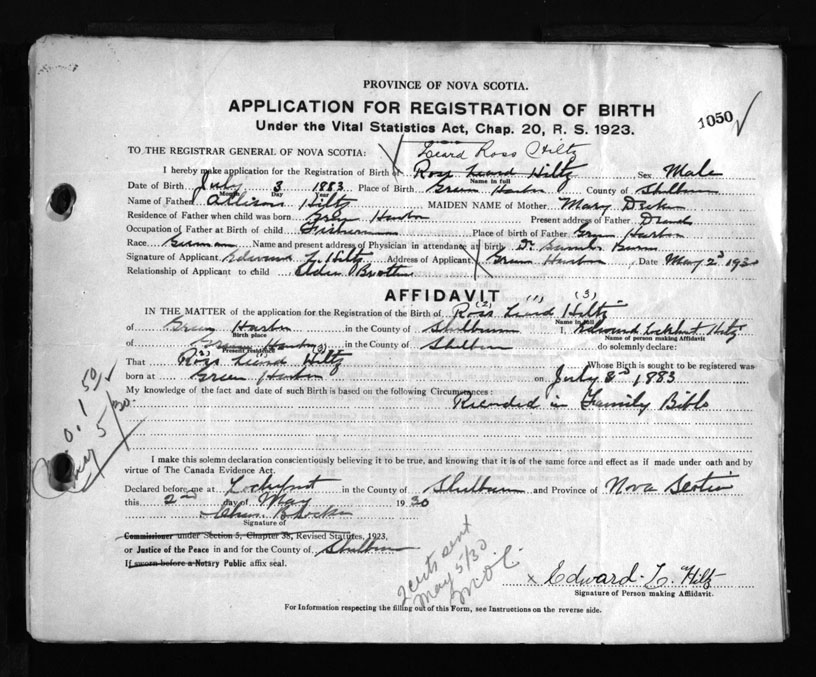 PROVINCE OF NOVA SCOTIA.
APPLICATION FOR REGISTRATION OF BIRTH
1050
Under the Vital Statistics Act, Chap. 20, R. S. 1923.
TO THE REGISTRAR GENERAL OF NOVA SCOTIA: Leard Ross Hiltz
I hereby make application for the Registration of Birth of Ross Leard Hiltz Sex Male
Name in full
Date of Birth July 3 1883 Place of Birth Green Harbor County of Shelburne
Month Day Year
Name of Father Allison Hiltz MAIDEN NAME of Mother Mary
Residence of Father when child was born Harbor Present address of Father Dead
Occupation of Father at Birth of child Fisherman Place of birth of Father Harbor
Race German Name and present address of Physician in attendance at birth Dr
Signature of Applicant Edward L. Hiltz Address of Applicant Green Harbor Date May 2d 1930
Relationship of Applicant to child Elder Brother
AFFIDAVIT
(2) (1) (3)
IN THE MATTER of the application for the Registration of the Birth of Ross Leard Hiltz
Name in full
of Green Harbor in the County of Shelburne I, Edward Lockhart Hiltz
Birth place Name of person making Affidavit
of Green Harbor in the County of Shelburne do solemnly declare:
Present residence
(2) (1) (3)
That Ross Leard Hiltz Whose Birth is sought to be registered was
born at Green Harbor on July 3d 1883
My knowledge of the fact and date of such Birth is based on the following Circumstances:
Recorded in Family Bible
May 5/30
I make this solemn declaration conscientiously believing it to be true, and knowing that it is of the same force and effect as if made under oath and by
virtue of The Canada Evidence Act.
Declared before me at Lockeport in the County of Shelburne and Province of Nova Scotia
this 2nd day of May 1930
Chas. B Locke
Signature of
Commissioner under Section 5, Chapter 38, Revised Statutes, 1923,
or Justice of the Peace in and for the County of Shelburne
If sworn before a Notary Public affix seal.
2 certs sent
May 5/30
x Edward L. Hiltz
Signature of Person making Affidavit.
For Information respecting the filling out of this Form, see Instructions on the reverse side.